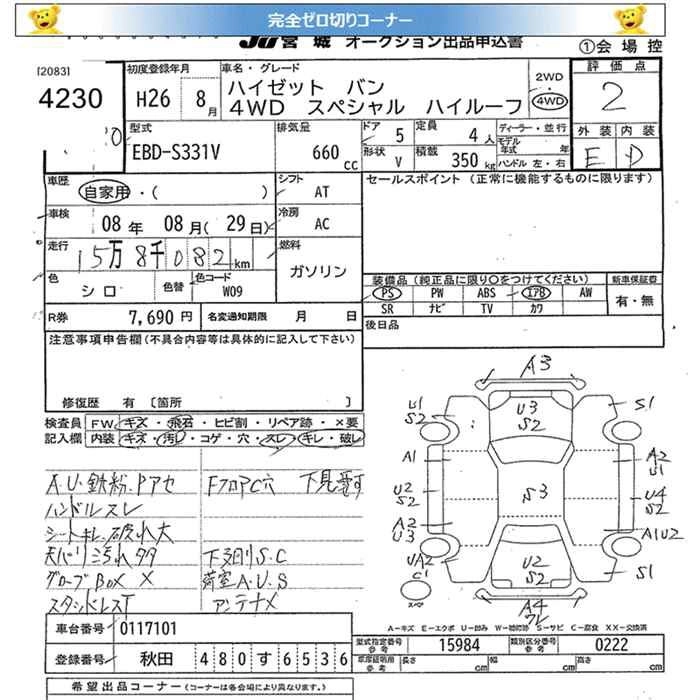 完全ゼロ切りコーナー
JU宮城 オークション出品申込書
①会場控
[2083]
4230
初度登録年月
H26 8月
車名・グレード
ハイゼット バン
4WD スペシャル ハイルーフ
2WD
4WD
評価点
2
外装 内装
E D
型式
EBD-S331V
排気量
660cc
ドア 5
形状 V
定員 4人
積載 350kg
ディーラー・並行
モデル年式 年
ハンドル 左・右
車歴
自家用・( )
シフト AT
セールスポイント (正常に機能するものに限ります)
車検
08年 08月(29日)
冷房 AC
走行
15万8千082km
燃料
ガソリン
色
シロ
色替
色コード
W09
装備品(純正品に限り○をつけてください)
PS PW ABS エアB AW
SR ナビ TV カワ
新車保証書
有・無
R券 7,690円
名変通知期限 月 日
後日品
注意事項申告欄(不具合内容等は具体的に記入して下さい)
修復歴 有 [箇所 ]
検査員記入欄
FW キズ・飛石・ヒビ割・リペア跡・×要
内装 キズ・汚レ・コゲ・穴・スレ・キレ・破レ
A.U.鉄粉.Pアセ
FフロアC穴
ハンドルスレ
シートキレ.破れ大
天バリ汚れタタ
下多刻リS.C
グローブBOX X
荷室A.U.S
アンテナX
A3
U1
S2
U3
S2
S1
A1
A2
U1
U2
S2
S3
U4
S2
A2
U3
A1U2
UA2
C1
U2
S2
S1
スペア
A4
ワレ
A-キズ E-エクボ U-凹み W-補修跡 S-サビ C-腐食 XX-交換済
車台番号 0117101
登録番号 秋田 480す6536
型式指定番号 参考 15984
類別区分番号 参考 0222
車庫証明用 参考 長さ cm 幅 cm 高さ cm
希望出品コーナー(コーナーは各会場により異なります。)